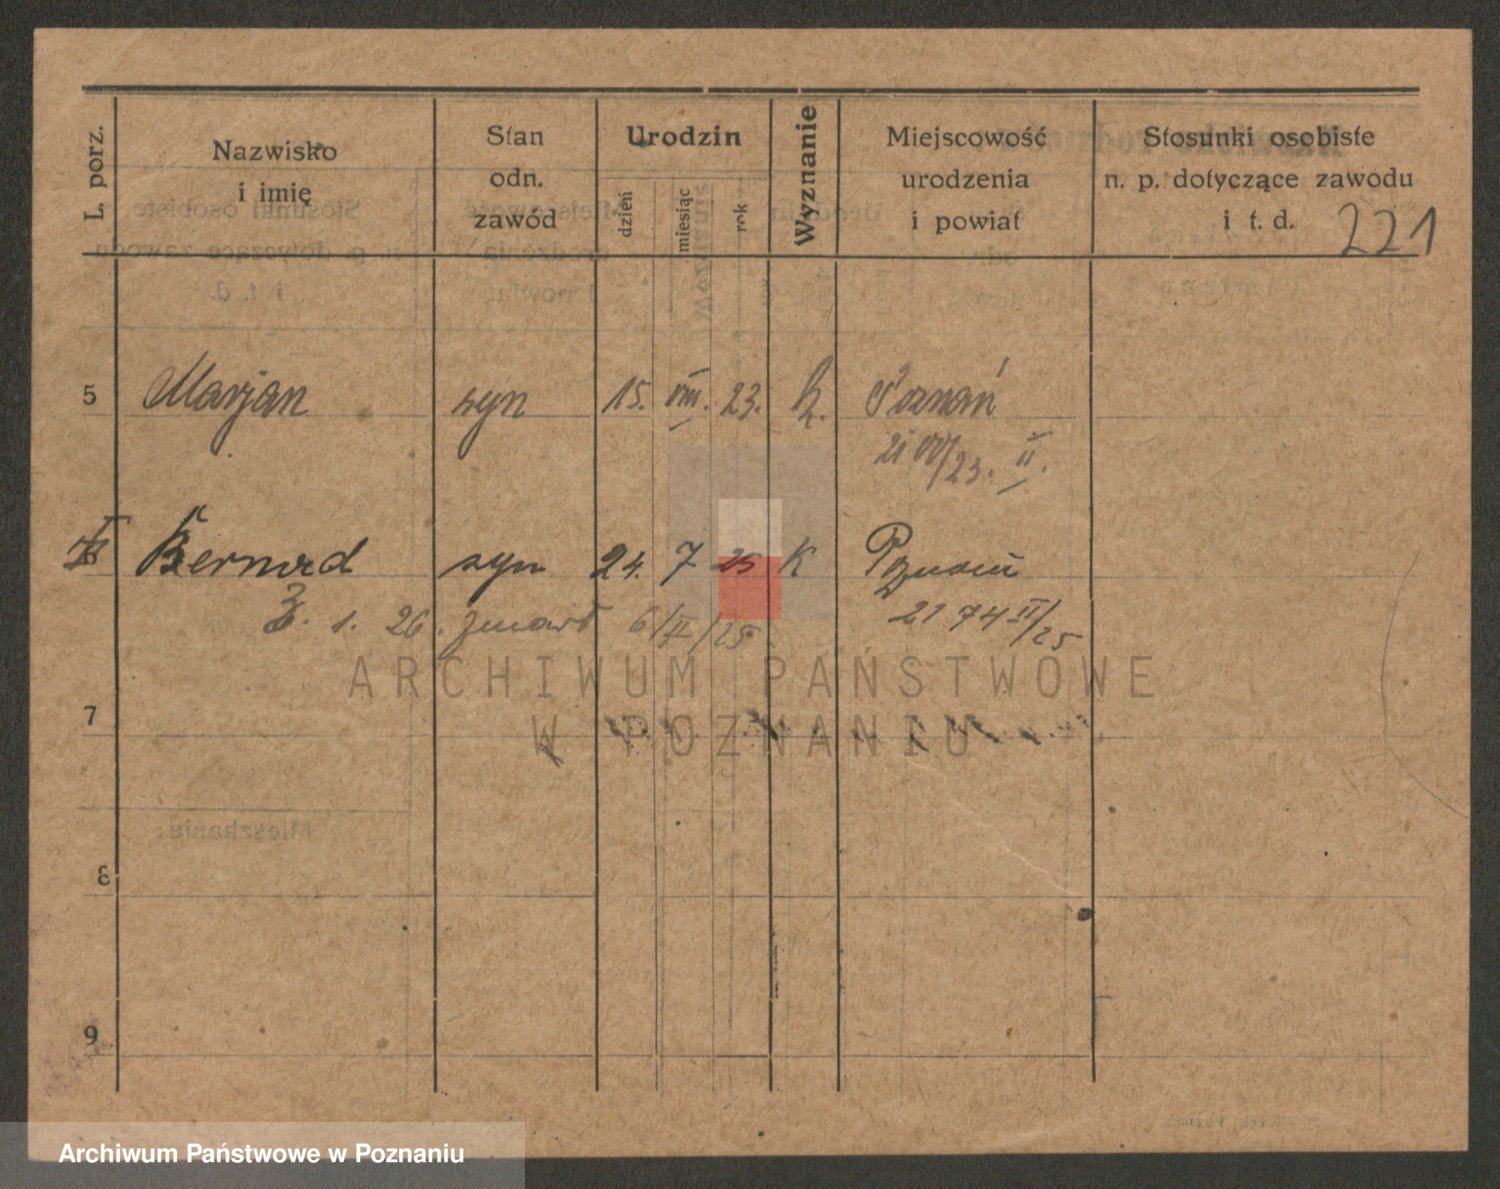 L. porz.
Nazwisko
i imię
Stan
odn.
zawód
Urodzin
dzień
miesiąc
rok
Wyznanie
Miejscowość
urodzenia
i powiat
Stosunki osobiste
n. p. dotyczące zawodu
i t. d.
221
5 Marjan syn 15. VIII. 23. k. Poznań
II.
6 Bernard syn 24. 7 25 K Poznań
3. 1. 26. zmarł 2174 II/25
ARCHIWUM PAŃSTWOWE
7
W POZNANIU
Mieszkanie:
8
9
Archiwum Państwowe w Poznaniu